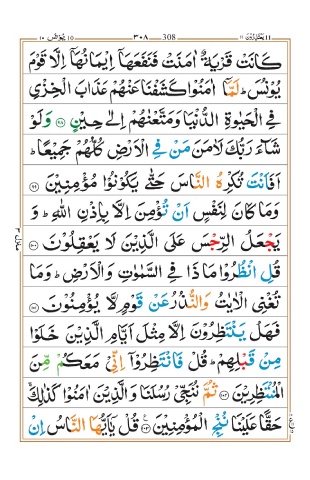 یونس ۱۰ ۳۰۸ 308 یعتذرون ۱۱
كَانَتْ قَرْيَةٌ اٰمَنَتْ فَنَفَعَهَاۤ اِيْمَانُهَاۤ اِلَّا قَوْمَ
يُوْنُسَ ؕ لَمَّاۤ اٰمَنُوْا كَشَفْنَا عَنْهُمْ عَذَابَ الْخِزْيِ
فِي الْحَيٰوةِ الدُّنْيَا وَمَتَّعْنٰهُمْ اِلٰى حِيْنٍ ﴿۹۸﴾ وَلَوْ
شَآءَ رَبُّكَ لَاٰمَنَ مَنْ فِي الْاَرْضِ كُلُّهُمْ جَمِيْعًا ؕ
اَفَاَنْتَ تُكْرِهُ النَّاسَ حَتّٰى يَكُوْنُوْا مُؤْمِنِيْنَ ﴿۹۹﴾
وَمَا كَانَ لِنَفْسٍ اَنْ تُؤْمِنَ اِلَّا بِاِذْنِ اللّٰهِ ؕ وَ
يَجْعَلُ الرِّجْسَ عَلَى الَّذِيْنَ لَا يَعْقِلُوْنَ ﴿۱۰۰﴾
قُلِ انْظُرُوْا مَا ذَا فِي السَّمٰوٰتِ وَالْاَرْضِ ؕ وَمَا
تُغْنِي الْاٰيٰتُ وَالنُّذُرُ عَنْ قَوْمٍ لَّا يُؤْمِنُوْنَ ﴿۱۰۱﴾
فَهَلْ يَنْتَظِرُوْنَ اِلَّا مِثْلَ اَيَّامِ الَّذِيْنَ خَلَوْا
مِنْ قَبْلِهِمْ ؕ قُلْ فَانْتَظِرُوْۤا اِنِّيْ مَعَكُمْ مِّنَ
الْمُنْتَظِرِيْنَ ﴿۱۰۲﴾ ثُمَّ نُنَجِّيْ رُسُلَنَا وَالَّذِيْنَ اٰمَنُوْا كَذٰلِكَ ۚ
حَقًّا عَلَيْنَا نُنْجِ الْمُؤْمِنِيْنَ ﴿۱۰۳﴾ قُلْ يٰۤاَيُّهَا النَّاسُ اِنْ